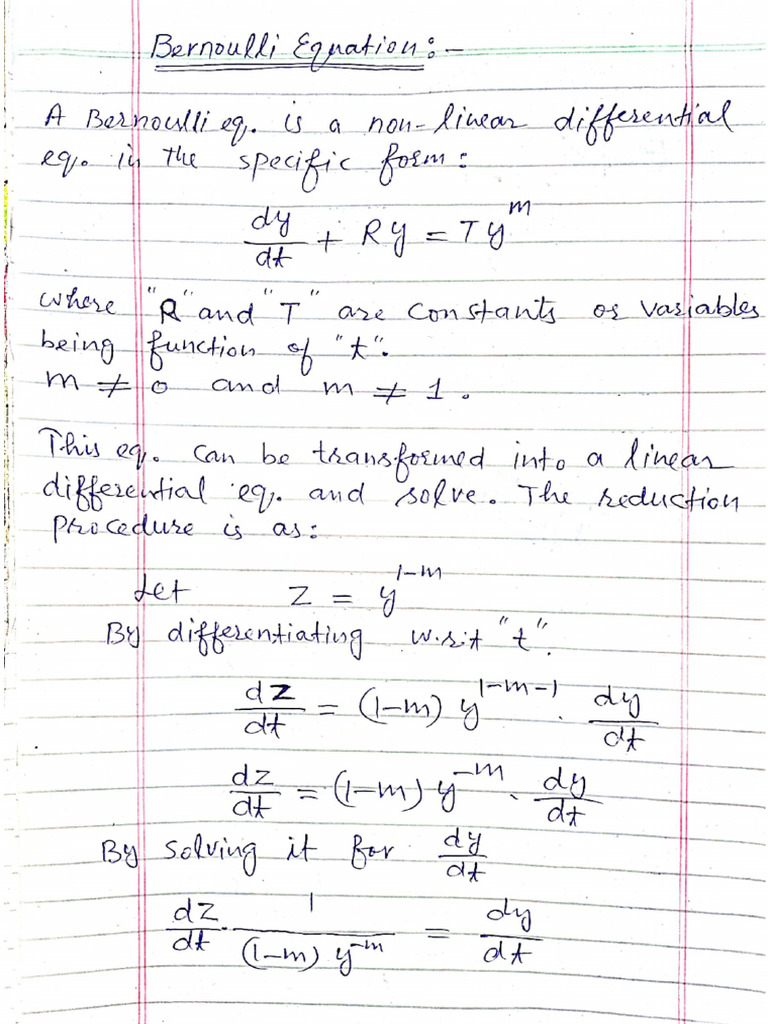 Bernoulli Equation:-
A Bernoulli eq. is a non-linear differential
eq. in the specific form:
dy/dt + Ry = Ty^m
where "R" and "T" are constants or variables
being function of "t".
m ≠ 0 and m ≠ 1.
This eq. can be transformed into a linear
differential eq. and solve. The reduction
procedure is as:
Let z = y^(1-m)
By differentiating w.r.t "t".
dz/dt = (1-m) y^(1-m-1) . dy/dt
dz/dt = (1-m) y^(-m) . dy/dt
By solving it for dy/dt
dz/dt . 1/((1-m) y^(-m)) = dy/dt